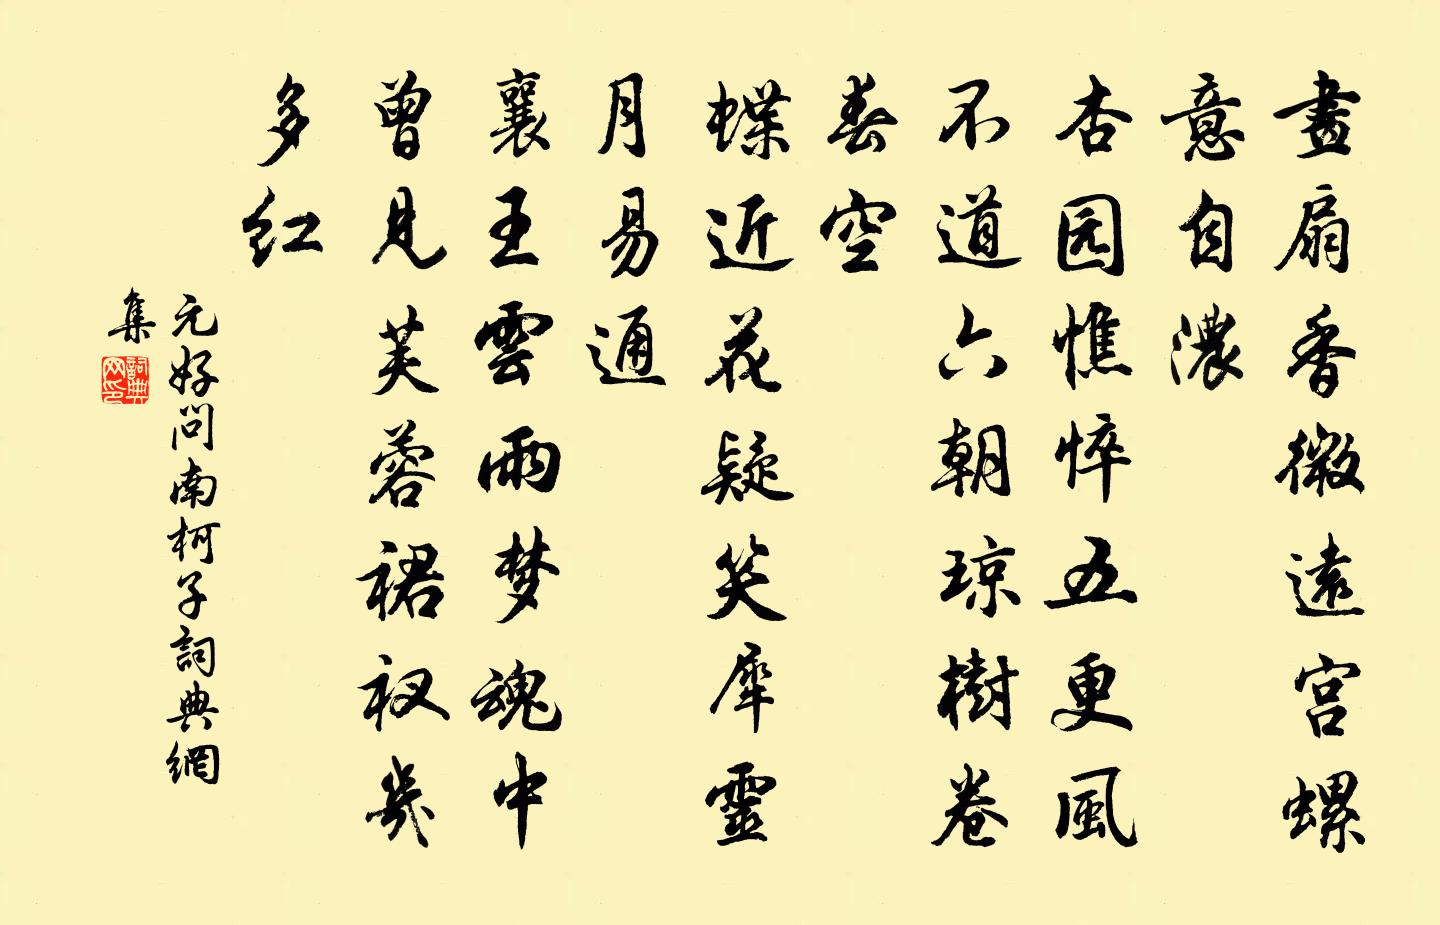 畫扇香微遠宮螺
意自濃
杏园憔悴五更風
不道六朝琼樹卷
春空
蝶近花疑笑犀靈
月易通
襄王雲雨梦魂中
曾見芙蓉裙衩幾
多红
元好问南柯子詞典網
集
詞典
网印